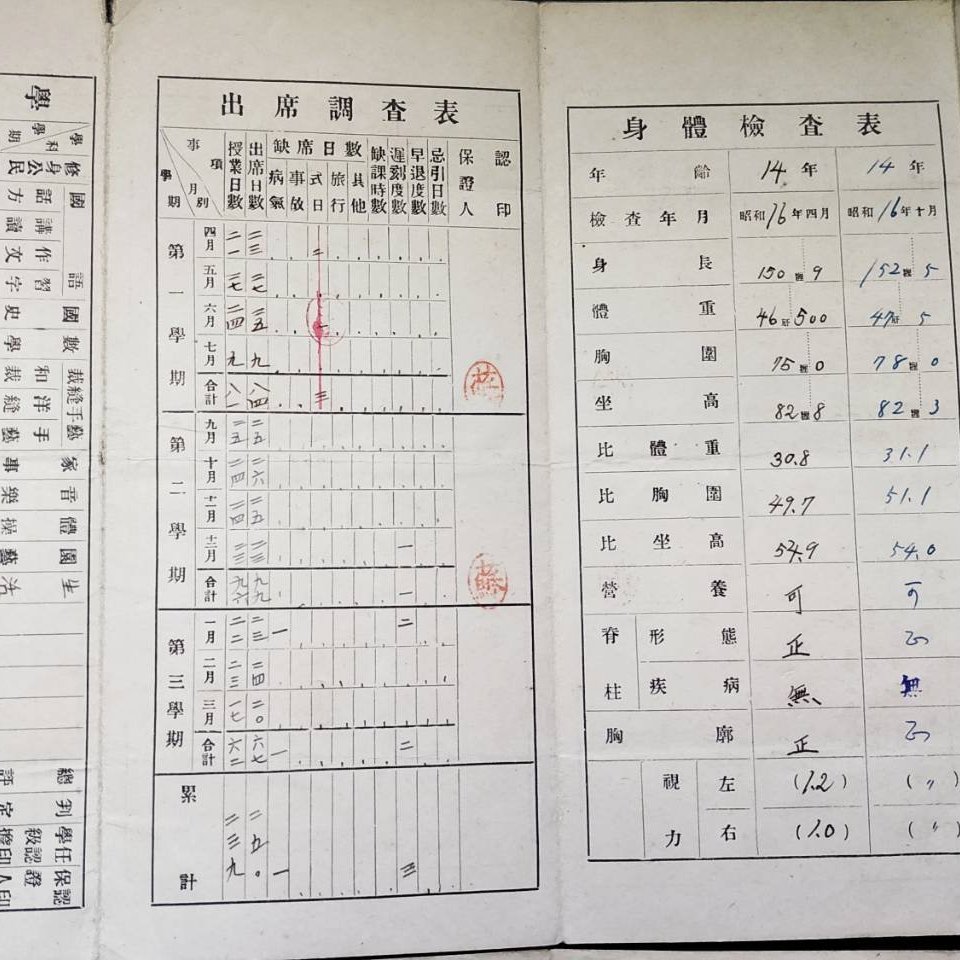 出席調査表
事項 月別 學期
授業日數 出席日數 缺席日數 缺課時數 遲刻度數 早退度數 忌引日數 保證人 認印
病氣 事故 式日 旅行 其他
第一學期
四月 二一 二三 二
五月 二七 二七
六月 二四 二五 一
七月 九 九
合計 八一 八四 三
第二學期
九月 二五 二五
十月 二四 二六
十一月 二四 二五
十二月 二三 二三 一
合計 九六 九九 一
第三學期
一月 二二 二三 一 二
二月 二三 二四
三月 一七 二〇
合計 六二 六七 一 二
累計 二三九 二五〇 一 三
身體檢査表
年齡 14年 14年
檢査年月 昭和16年四月 昭和16年十月
身長 150 9 152 5
體重 46 500 47 5
胸圍 75 0 78 0
坐高 82 8 82 3
比體重 30.8 31.1
比胸圍 49.7 51.1
比坐高 54.9 54.0
營養 可 可
脊柱 形態 正 正
疾病 無 無
胸廓 正 正
視力 左 (1.2) (〃)
右 (1.0) (〃)
學
學科 學期
修身公民
國語 話方 講讀 作文 習字
國史
數學
裁縫手藝 和裁 洋縫 手藝
家事
音樂
體操
園藝
生活
總評
判定
學級擔任認印
保證人認印